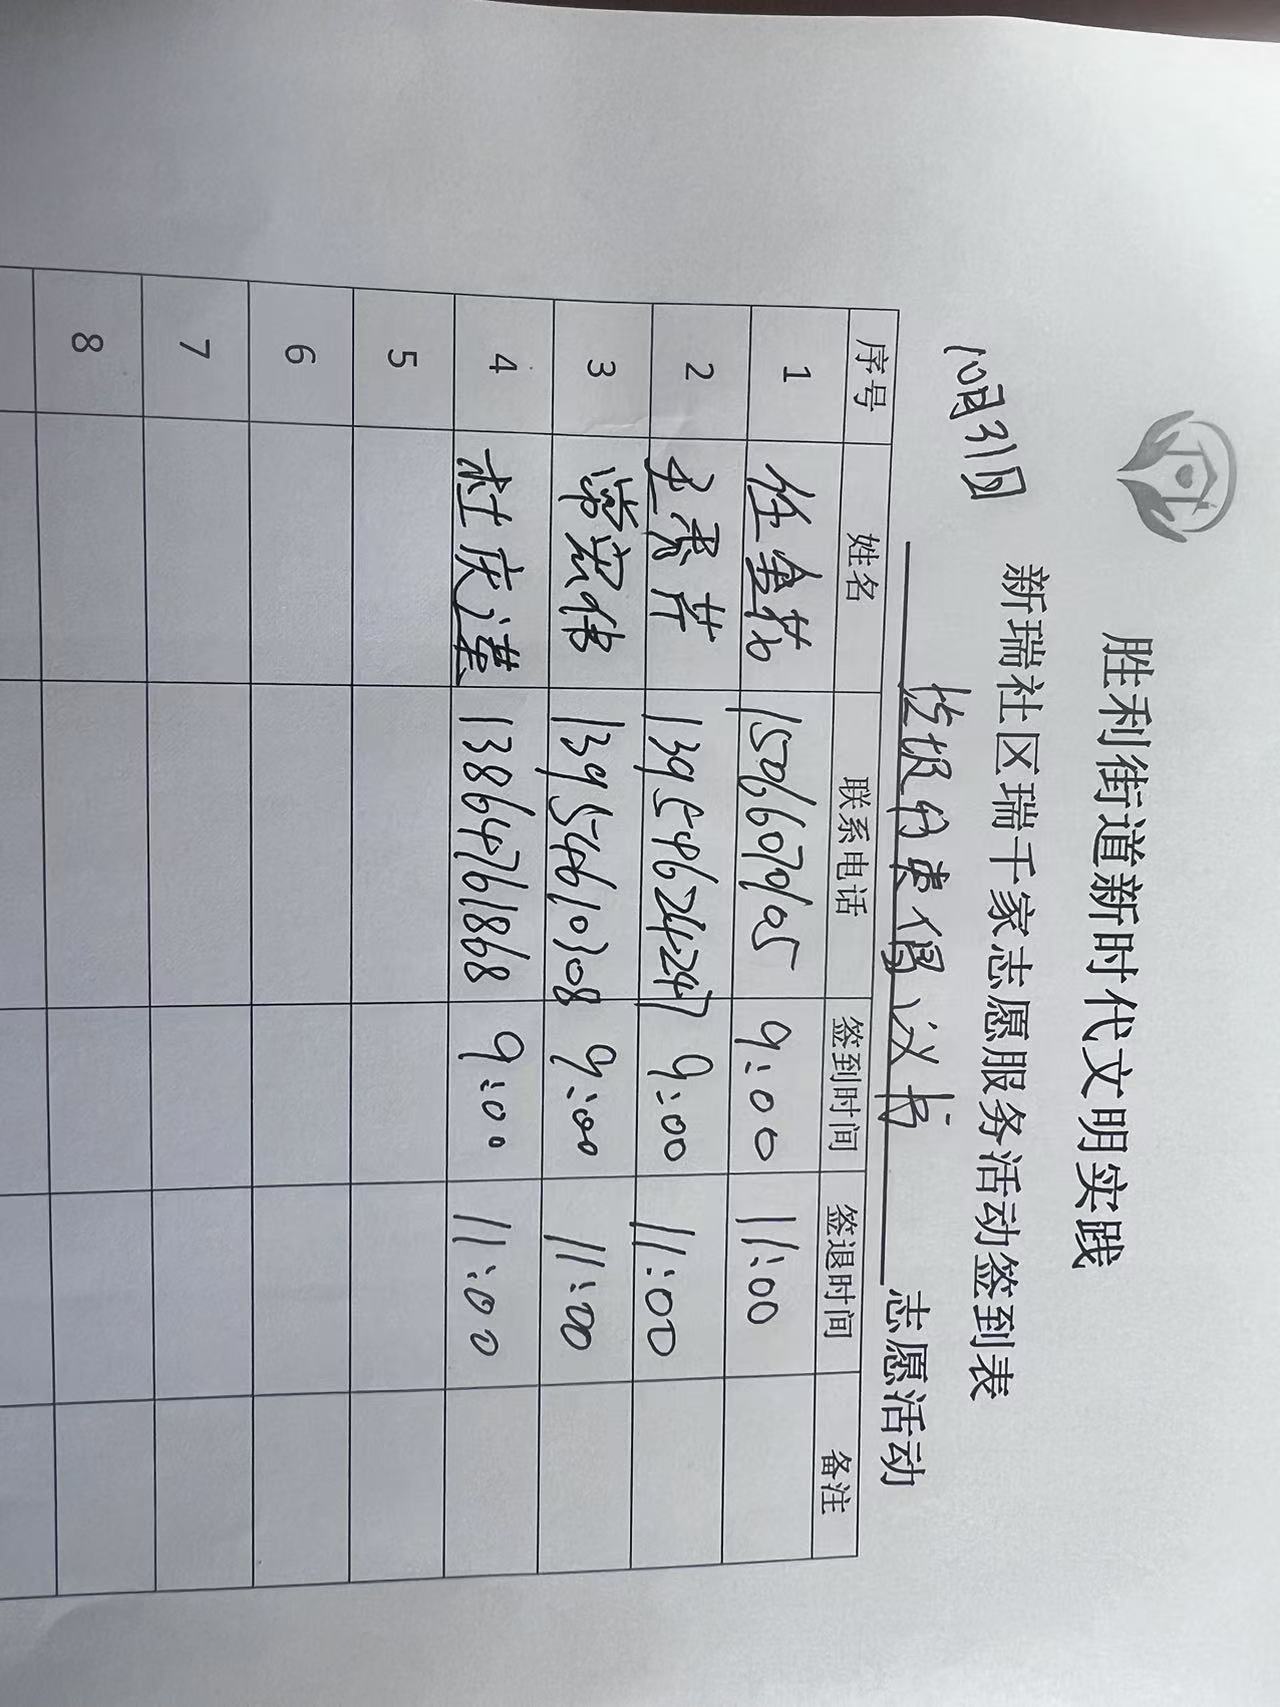 胜利街道新时代文明实践
新瑞社区瑞千家志愿服务活动签到表
10月31日
垃圾分类倡议书 志愿活动
序号 姓名 联系电话 签到时间 签退时间 备注
1 任金 9:00 11:00
2 王秀芹 13954624247 9:00 11:00
3 常宏伟 13954610308 9:00 11:00
4 杜庆 13864761868 9:00 11:00
5
6
7
8